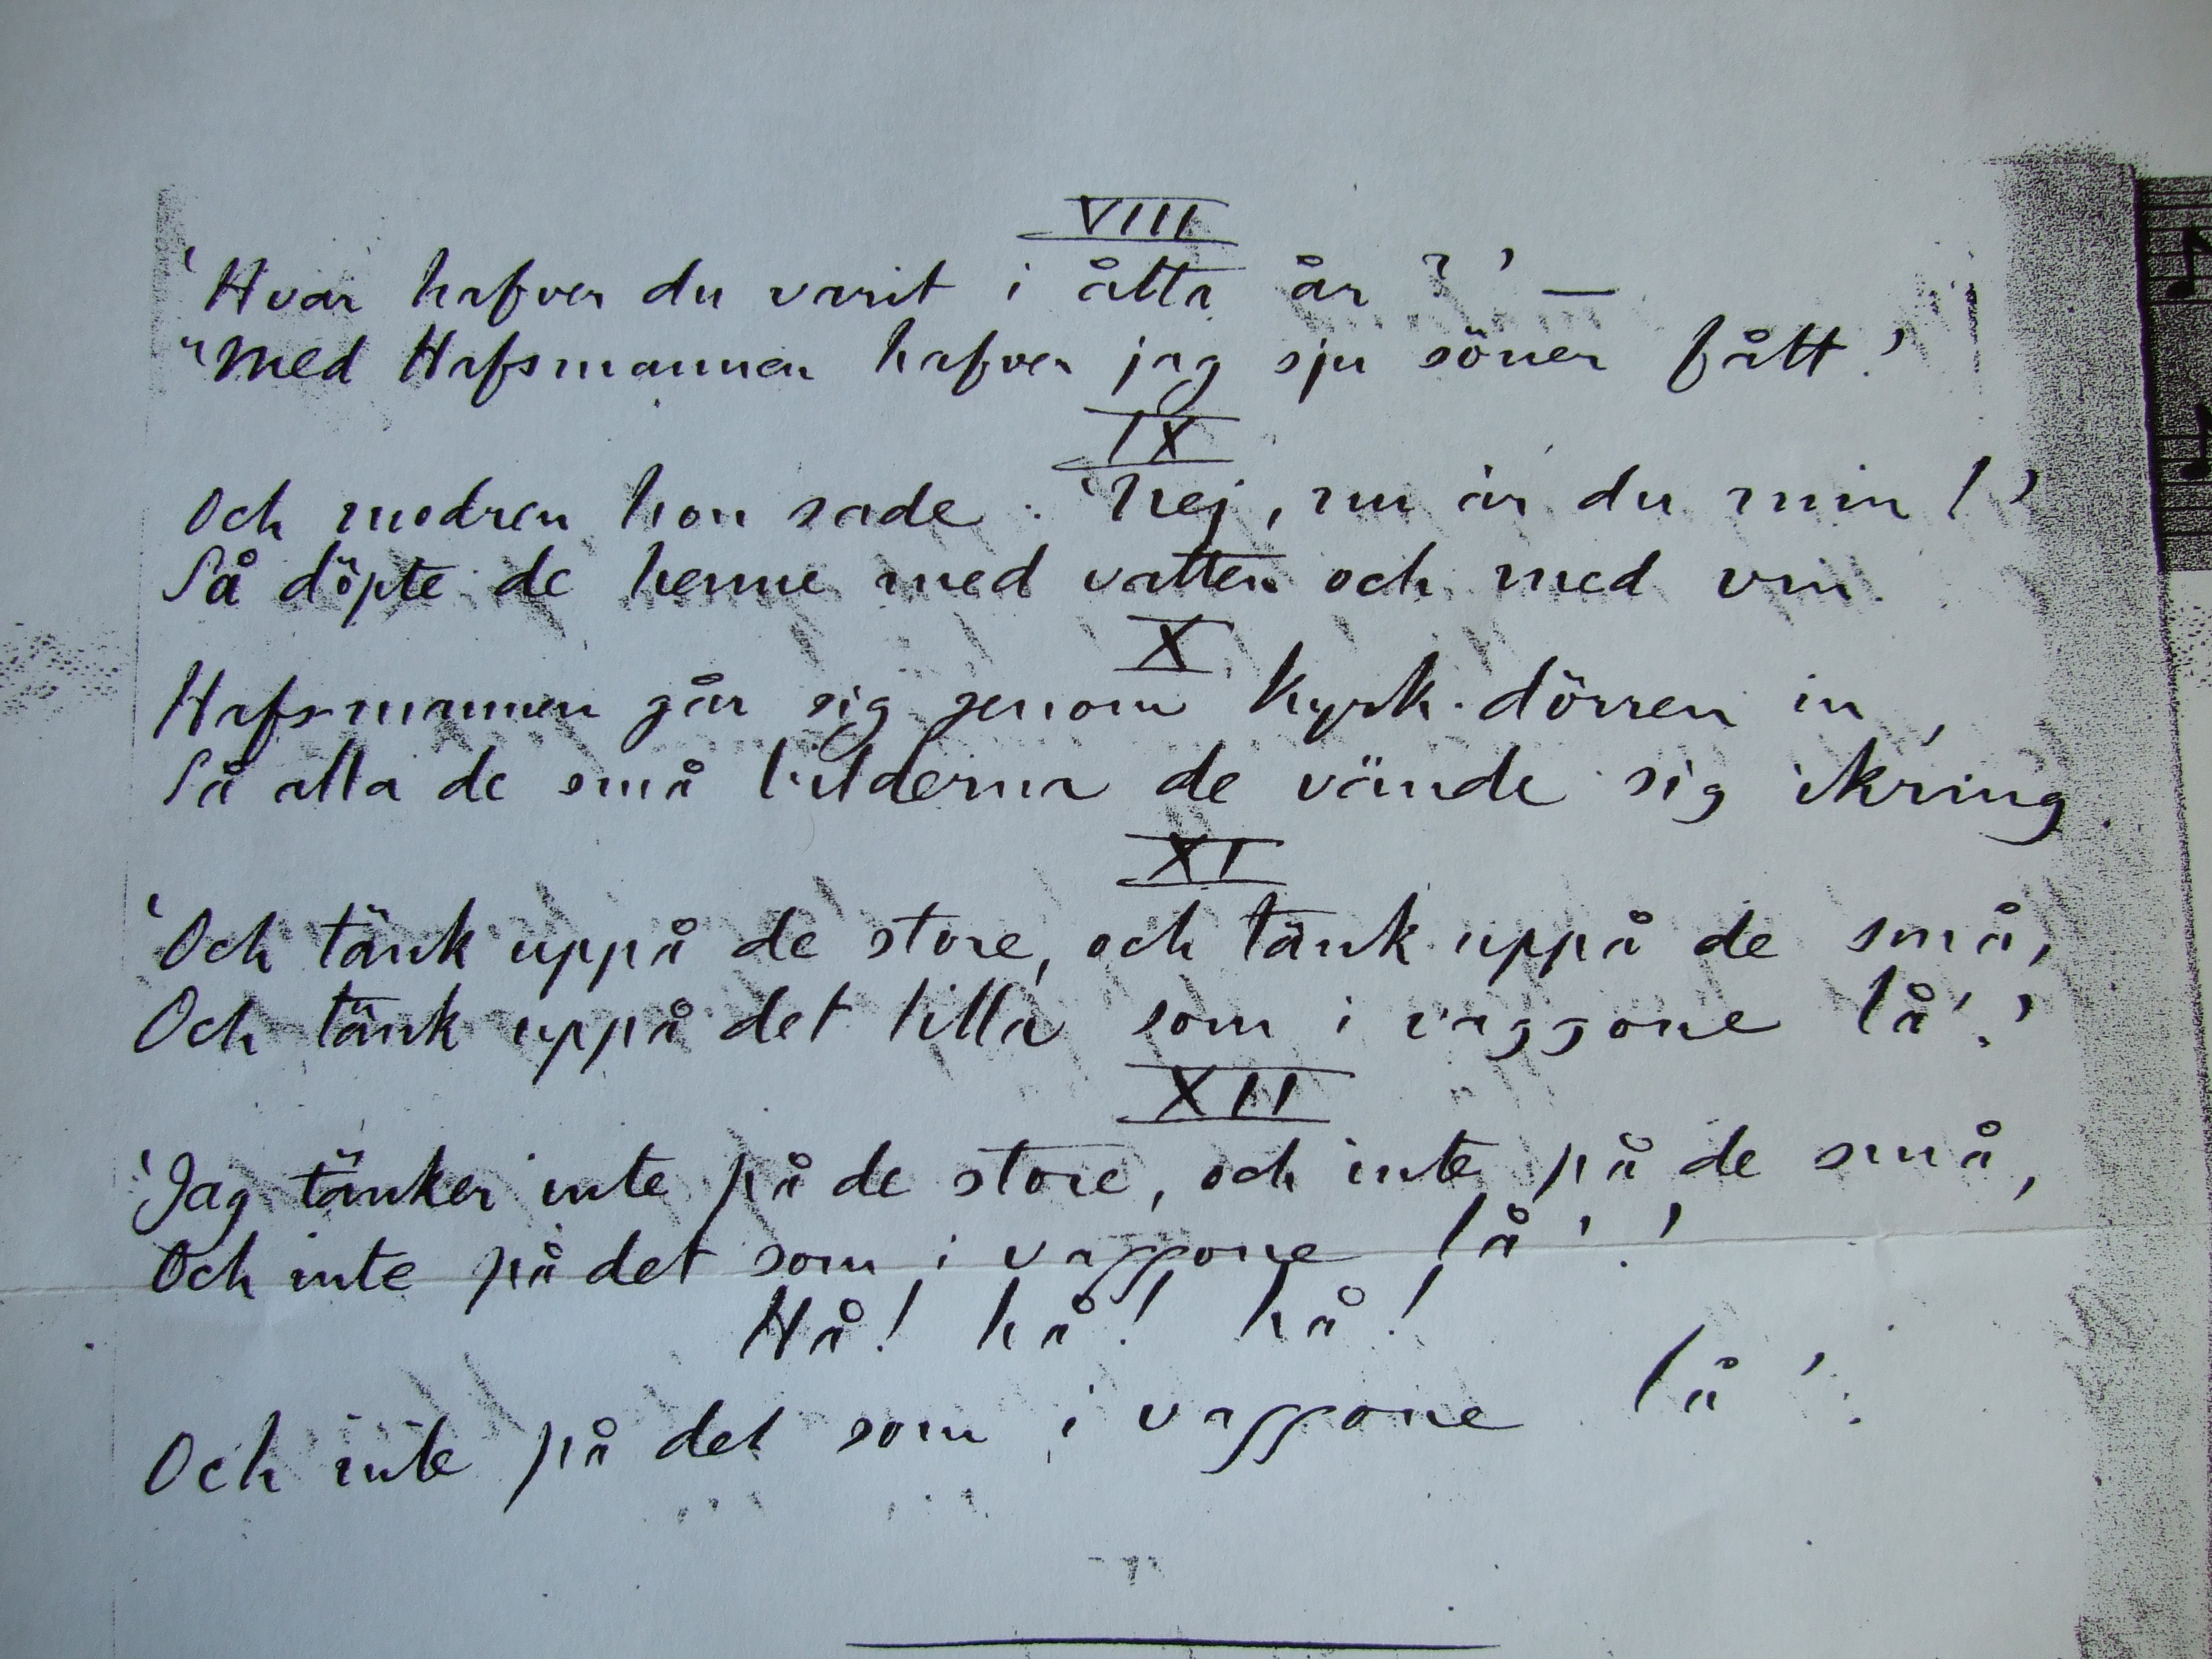 VIII
'Hvar hafver du varit i åtta år?' —
"Med Hafsmannen hafver jag sju söner fått.'
IX
Och modren hon sade: 'Nej, nu är du min!'
Så döpte de henne med vatten och med vin.
X
Hafsmannen går sig genom kyrk-dörren in,
Så alla de små bilderna de vände sig ikring.
XI
'Och tänk uppå de store, och tänk uppå de små,
Och tänk uppå det lilla som i vaggone lå'.'
XII
'Jag tänker inte på de store, och inte på de små,
Och inte på det som i vaggone lå'.'
Hå! hå! hå!
Och inte på det som i vaggone lå'.